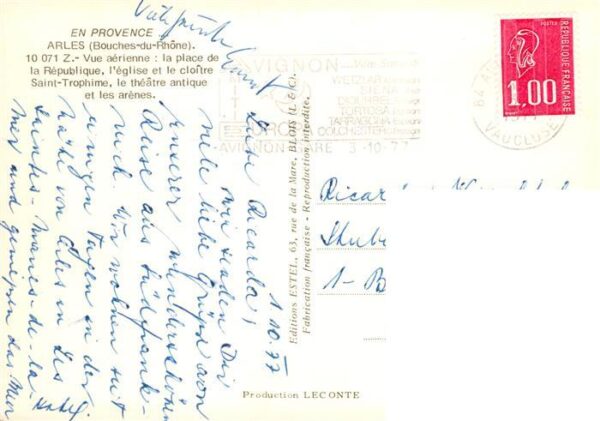 EN PROVENCE
ARLES (Bouches-du-Rhône).
10 071 Z.- Vue aérienne : la place de
la République, l'église et le cloître
Saint-Trophime, le théâtre antique
et les arènes.
AVIGNON
WETZLAR
SIENA
TORTOSA
TARRAGONA
COLCHESTER
AVIGNON GARE 3-10-77
84 AVIGNON
VAUCLUSE
POSTES
1,00
REPUBLIQUE FRANÇAISE
1.10.77
Liebe Ricarda,
wir senden Dir
viele liebe Grüße von
unserer wunderschönen
Reise aus Südfrank-
reich. Wir wohnen seit
einigen Tagen in der
Nähe von Arles in Les
Saintes-Maries-de-la
und genießen das Meer
Editions ESTEL, 63, rue de la Mare, BLOIS (L.-&-C).
Fabrication française - Reproduction interdite.
Production LECONTE